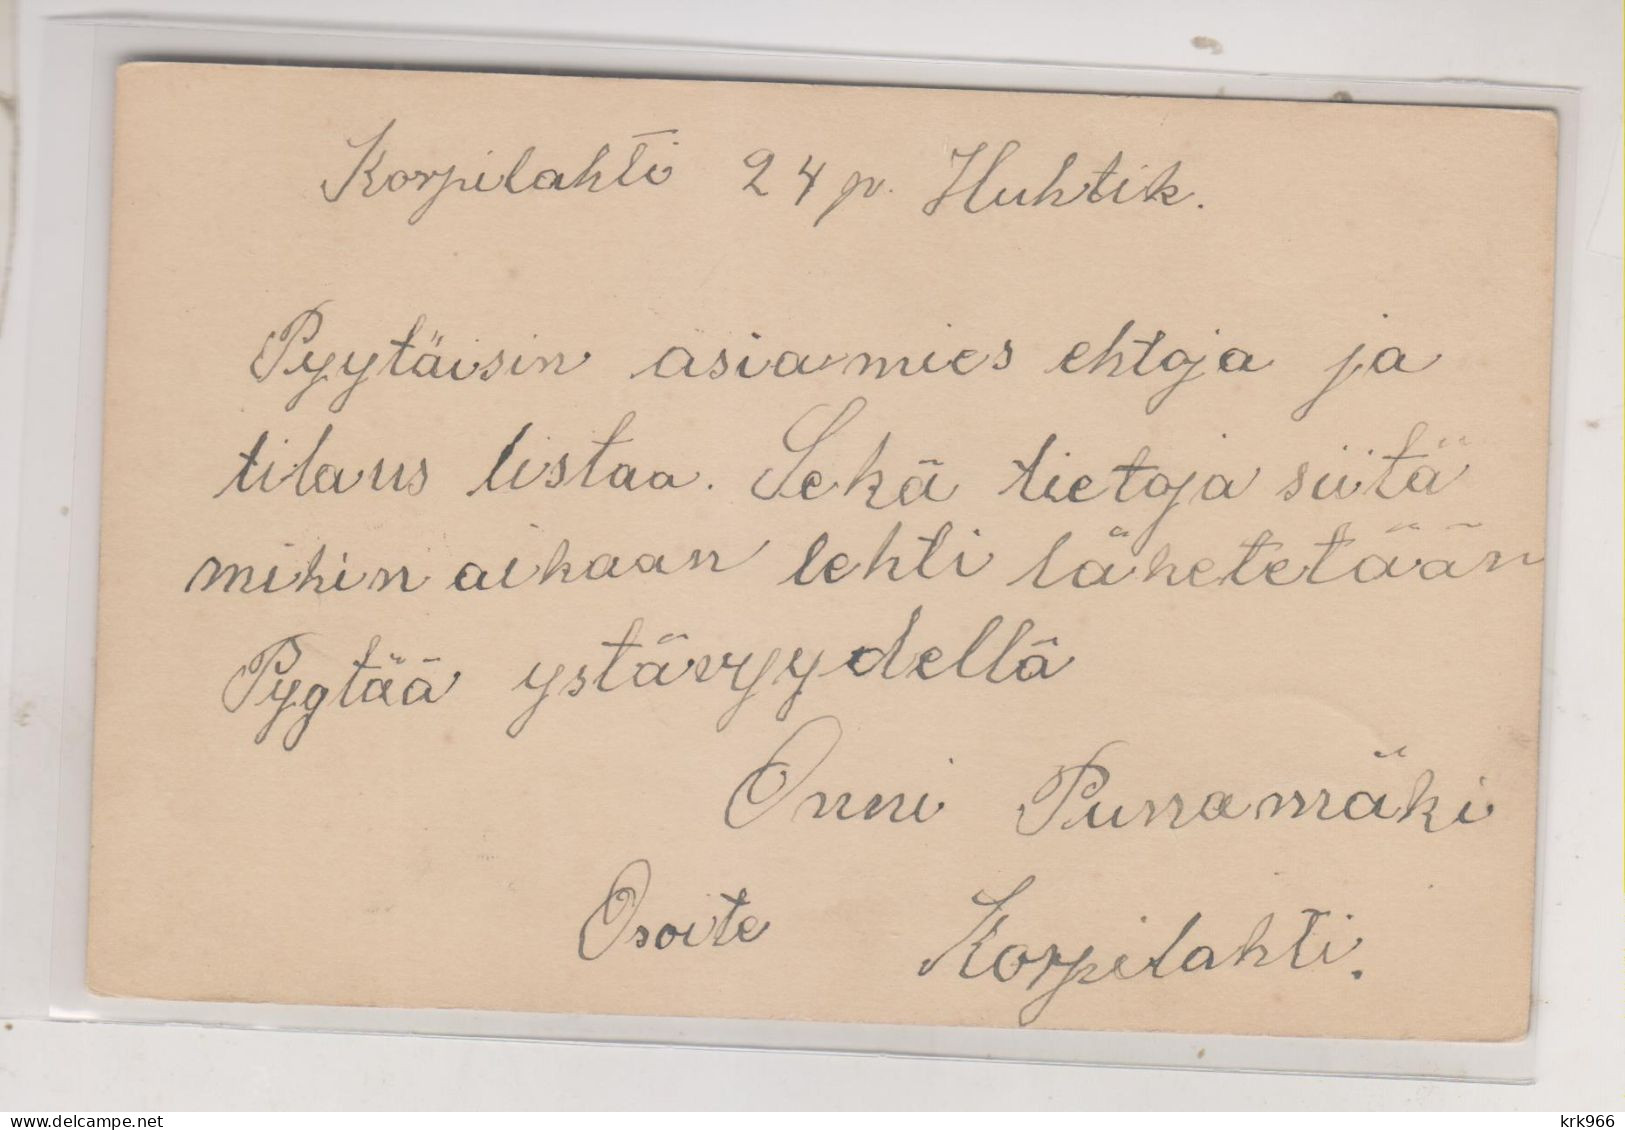 Korpilahti 24 p. Huhtik.
Pyytäisin asia-mies ehtoja ja
tilaus listaa. Sekä tietoja siitä
mihin aikaan lehti lähetetään
Pyytää ystävyydellä
Onni Punamäki
Osoite Korpilahti.
krk966